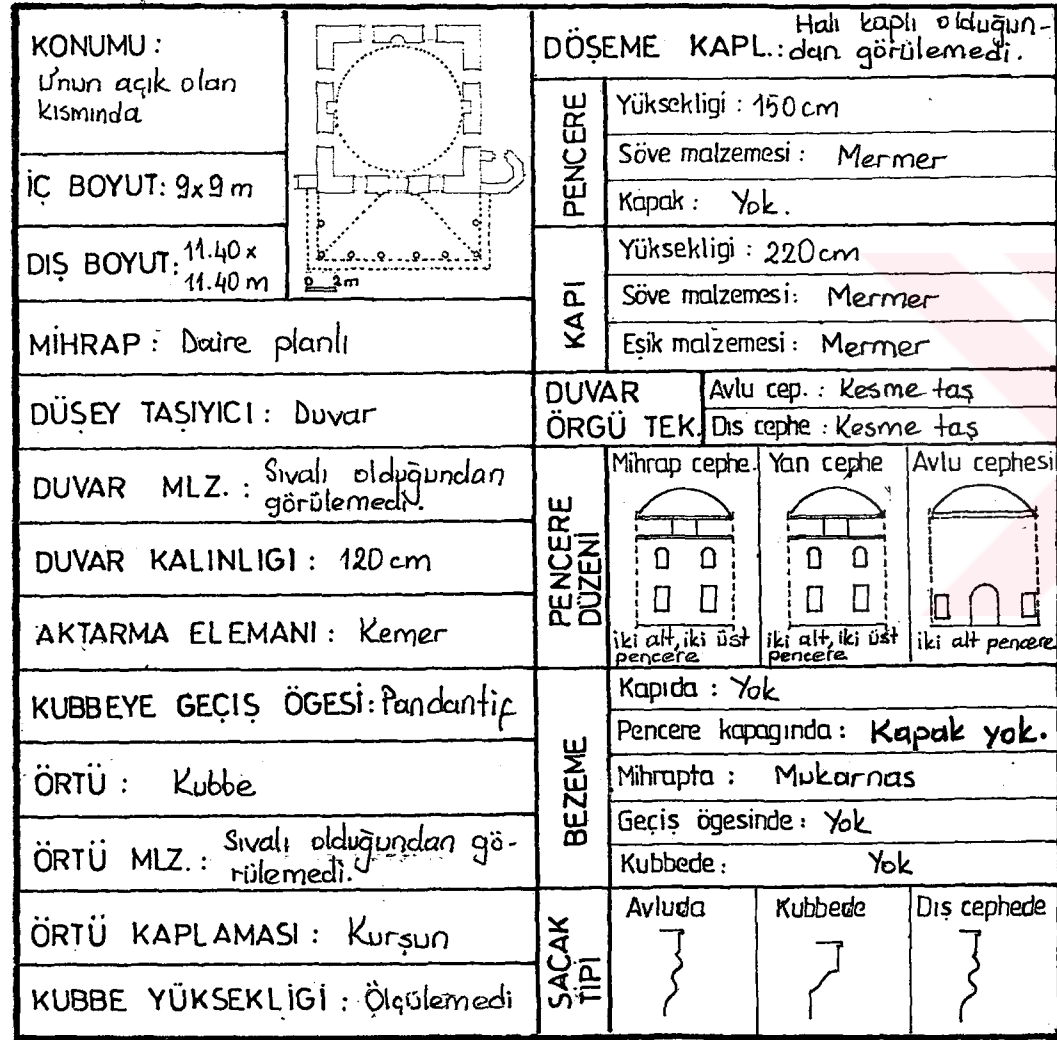 KONUMU :
U'nun açık olan
kısmında
İÇ BOYUT: 9x9 m
DIŞ BOYUT: 11.40 x
11.40 m
0 2m
MİHRAP : Daire planlı
DÜŞEY TAŞIYICI : Duvar
DUVAR MLZ. : Sıvalı olduğundan
görülemedi.
DUVAR KALINLIGI : 120 cm
AKTARMA ELEMANI : Kemer
KUBBEYE GEÇİŞ ÖGESİ: Pandantif
ÖRTÜ : Kubbe
ÖRTÜ MLZ. : Sıvalı olduğundan gö-
rülemedi.
ÖRTÜ KAPLAMASI : Kurşun
KUBBE YÜKSEKLİGİ : Ölçülemedi
DÖŞEME KAPL.: Halı kaplı olduğun-
dan görülemedi.
PENCERE
Yüksekligi : 150 cm
Söve malzemesi : Mermer
Kapak : Yok.
KAPI
Yüksekligi : 220 cm
Söve malzemesi : Mermer
Eşik malzemesi : Mermer
DUVAR
ÖRGÜ TEK.
Avlu cep. : Kesme taş
Dıs cephe : Kesme taş
PENCERE
DÜZENİ
Mihrap cephe.
iki alt, iki üst
pencere
Yan cephe
iki alt, iki üst
pencere
Avlu cephesi
iki alt pencere
BEZEME
Kapıda : Yok
Pencere kapagında : Kapak yok.
Mihrapta : Mukarnas
Geçiş ögesinde : Yok
Kubbede : Yok
SAÇAK
TİPİ
Avluda
Kubbede
Dış cephede